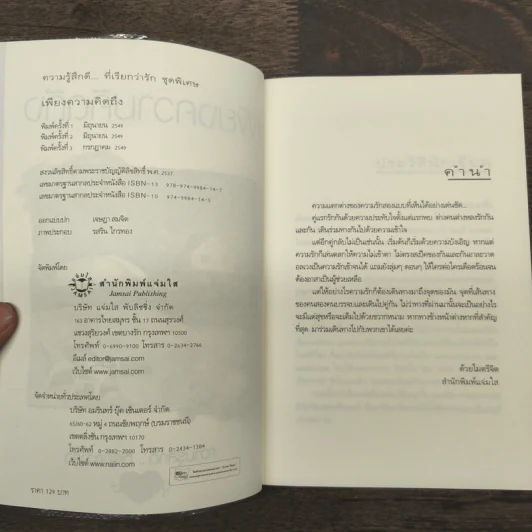 ความรู้สึกดี... ที่เรียกว่ารัก ชุดพิเศษ
เพียงความคิดถึง
พิมพ์ครั้งที่ 1 มิถุนายน 2549
พิมพ์ครั้งที่ 2 มิถุนายน 2549
พิมพ์ครั้งที่ 3 กรกฎาคม 2549
สงวนลิขสิทธิ์ตามพระราชบัญญัติลิขสิทธิ์ พ.ศ. 2537
เลขมาตรฐานสากลประจำหนังสือ ISBN-13 978-974-9984-14-7
เลขมาตรฐานสากลประจำหนังสือ ISBN-10 974-9984-14-5
ออกแบบปก เจษฎา สมจิต
ภาพประกอบ รสริน ไกรทอง
จัดพิมพ์โดย
สำนักพิมพ์แจ่มใส
Jamsai Publishing
บริษัท แจ่มใส พับลิชชิ่ง จำกัด
163 อาคารไทยสมุทร ชั้น 17 ถนนสุรวงศ์
แขวงสุริยวงศ์ เขตบางรัก กรุงเทพฯ 10500
โทรศัพท์ 0-6990-9100 โทรสาร 0-2634-2766
อีเมล์ editor@jamsai.com
เว็บไซต์ www.jamsai.com
จัดจำหน่ายทั่วประเทศโดย
บริษัท อมรินทร์ บุ๊ค เซ็นเตอร์ จำกัด
65/60-62 หมู่ 4 ถนนชัยพฤกษ์ (บรมราชชนนี)
เขตตลิ่งชัน กรุงเทพฯ 10170
โทรศัพท์ 0-2882-2000 โทรสาร 0-2434-1384
เว็บไซต์ www.naiin.com
ราคา 129 บาท
คำนำ
ความแตกต่างของความรักสองแบบที่เห็นได้อย่างเด่นชัด...
คู่แรกรักกันด้วยความประทับใจตั้งแต่แรกพบ ต่างคนต่างหลงรักกัน
และกัน เดินร่วมทางกันไปด้วยความเข้าใจ
แต่อีกคู่กลับไม่เป็นเช่นนั้น เริ่มต้นก็เริ่มด้วยความบังเอิญ หากแต่
ความรักก็เล่นตลกให้ความไม่เข้าตา ไม่ตรงสเป็คของกันและกันอาละวาด
กลบความรักเข้าจนได้ แถมยังลุ่มๆ ดอนๆ ให้ใครต่อใครเดือดร้อนจน
ต้องอาสาเป็นผู้ช่วยเหลือ
แต่ให้อย่างไรความรักก็ต้องเดินทางมาถึงจุดของมัน จุดที่เส้นทาง
ของคนสองคนบรรจบและเดินไปคู่กัน ไม่ว่าทางที่ผ่านมานั้นจะเป็นอย่างไร
จะมีแต่สุขหรือจะเต็มไปด้วยขวากหนาม หากทางข้างหน้าต่างหากที่สำคัญ
ที่สุด มาร่วมเดินทางไปกับพวกเขาได้เลยค่ะ
ด้วยไมตรีจิต
สำนักพิมพ์แจ่มใส